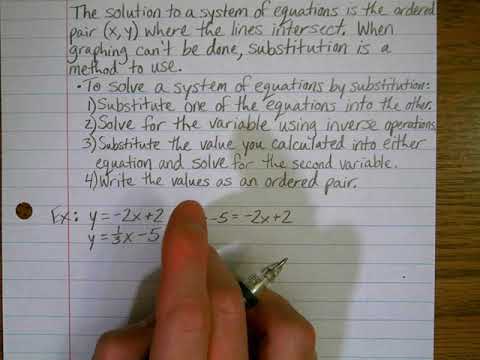 The solution to a system of equations is the ordered
pair (x, y) where the lines intersect. When
graphing can't be done, substitution is a
method to use.
• To solve a system of equations by substitution:
1) Substitute one of the equations into the other.
2) Solve for the variable using inverse operations.
3) Substitute the value you calculated into either
equation and solve for the second variable.
4) Write the values as an ordered pair.
Ex: y = -2x + 2 -5 = -2x + 2
y = 1/3x - 5